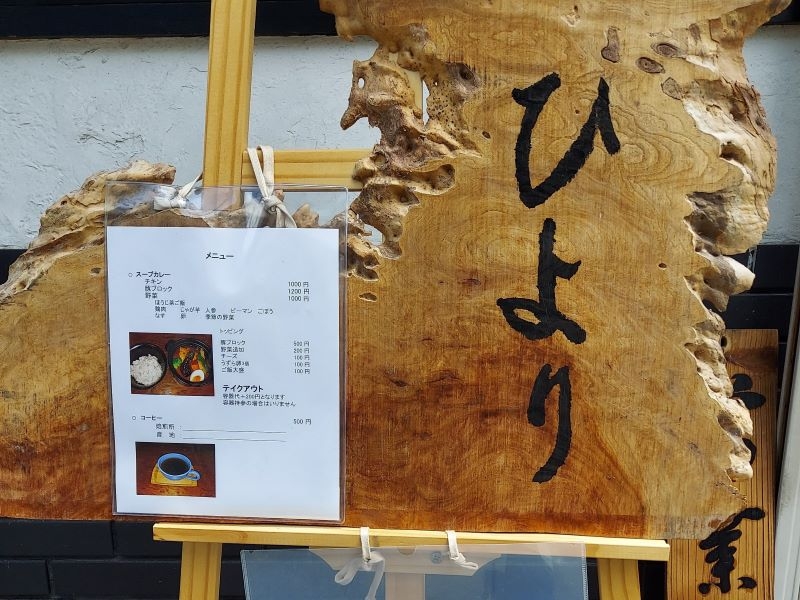 ひより
メニュー
○ スープカレー
チキン 1000 円
豚ブロック 1200 円
野菜 1000 円
ほうじ茶ご飯
鶏肉 じゃが芋 人参 ピーマン ごぼう
なす 卵 季節の野菜
トッピング
豚ブロック 500 円
野菜追加 200 円
チーズ 100 円
うずら卵3個 100 円
ご飯大盛 100 円
テイクアウト
容器代+200円となります
容器持参の場合はいりません
○ コーヒー 500 円
焙煎所 :
産 地 :